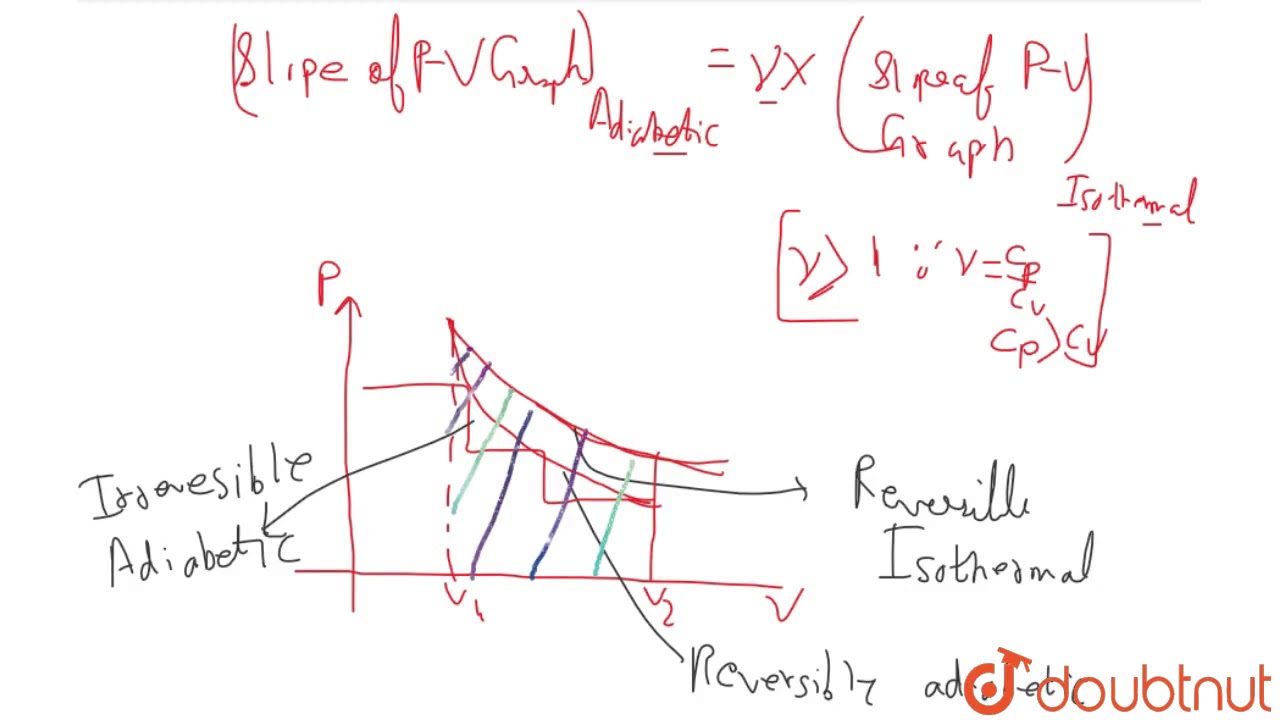 (Slipe of P-V Graph) Adiabetic = γ X (Slipe of P-V Graph) Isothermal
[γ > 1 ∵ γ = Cp/Cv
Cp > Cv]
P
Irrevesible
Adiabetic
Reversible
Isothermal
V1
V2
V
Reversibly adiabetic
doubtnut